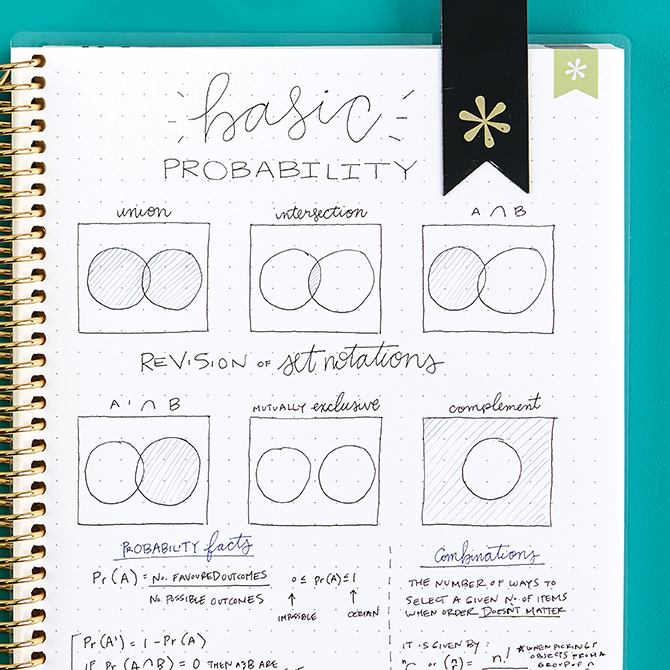 basic
PROBABILITY
union
intersection
A ∩ B
REVISION OF set notations
A' ∩ B
MUTUALLY exclusive
complement
PROBABILITY facts
Pr(A) = NO. FAVOURED OUTCOMES
NO. POSSIBLE OUTCOMES
0 ≤ Pr(A) ≤ 1
IMPOSSIBLE
CERTAIN
Pr(A') = 1 - Pr(A)
IF Pr(A ∩ B) = 0 THEN A&B ARE
Combinations
THE NUMBER OF WAYS TO
SELECT A GIVEN NO. OF ITEMS
WHEN ORDER DOESNT MATTER
IT IS GIVEN BY:
*WHEN PICKING r
OBJECTS FROM A
GROUP OF n
n!